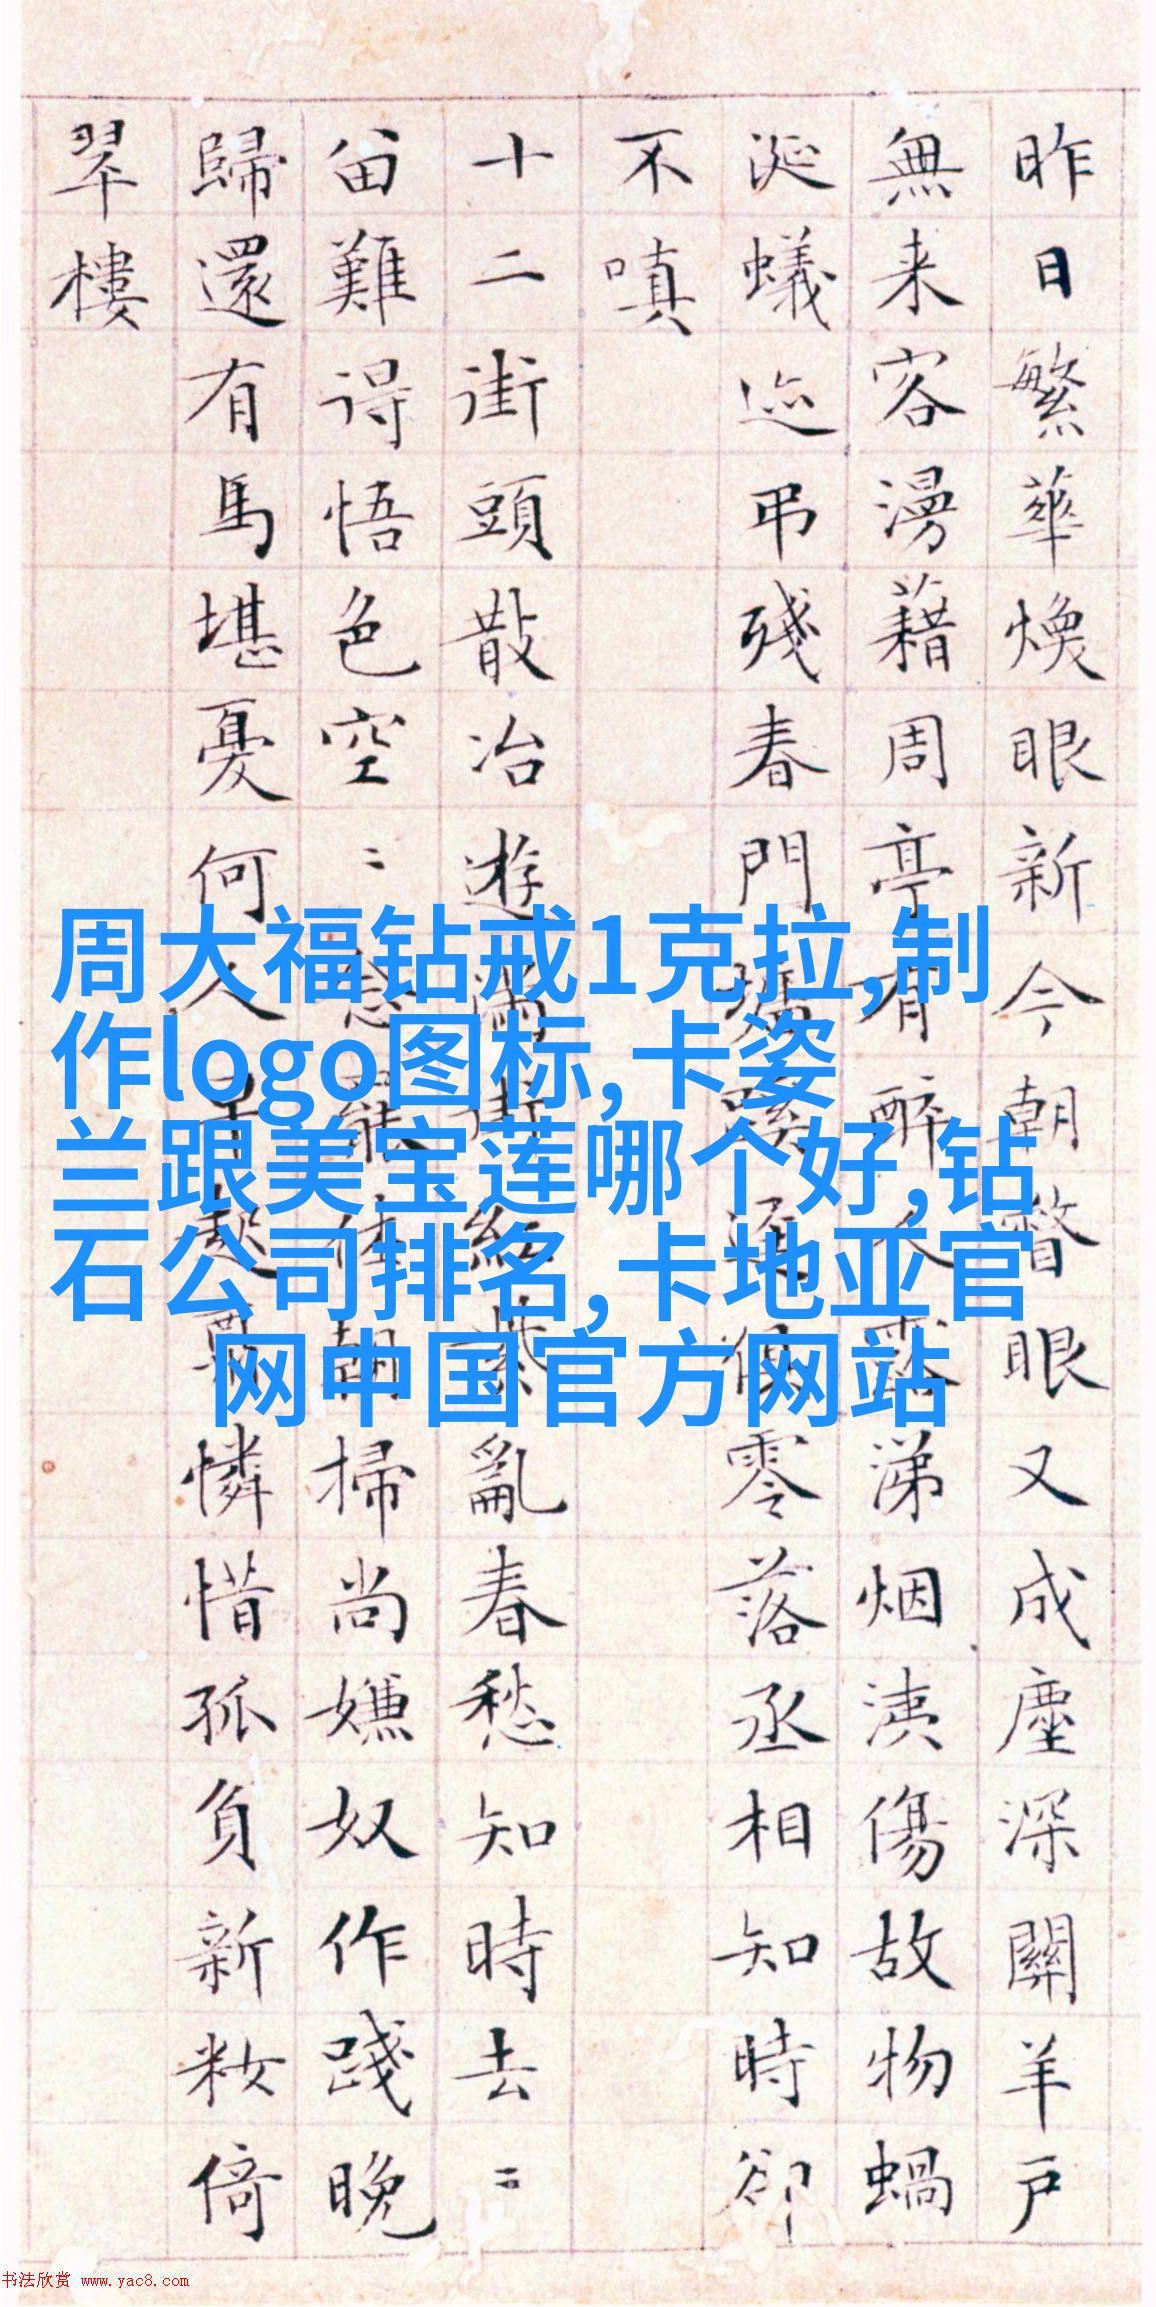 昨日繁華煥眼新今朝瞥眼又成塵深關羊戶
無来客漫藉周亭有醉人露涕烟洟傷故物蝸
涎蟻迹弔殘春門零落丞相知時卻
不嗔
十二街頭散冶遊滿街紅紫亂春愁知時去〻
留難得悟色空〻朝掃尚嫌奴作踐晚
歸還有馬堪憂何人早起憐惜孤負新粧倚
翠樓
周大福钻戒1克拉,制
作logo图标,卡姿
兰跟美宝莲哪个好,钻
石公司排名,卡地亚官
网中国官方网站
书法欣赏 www.yac8.com